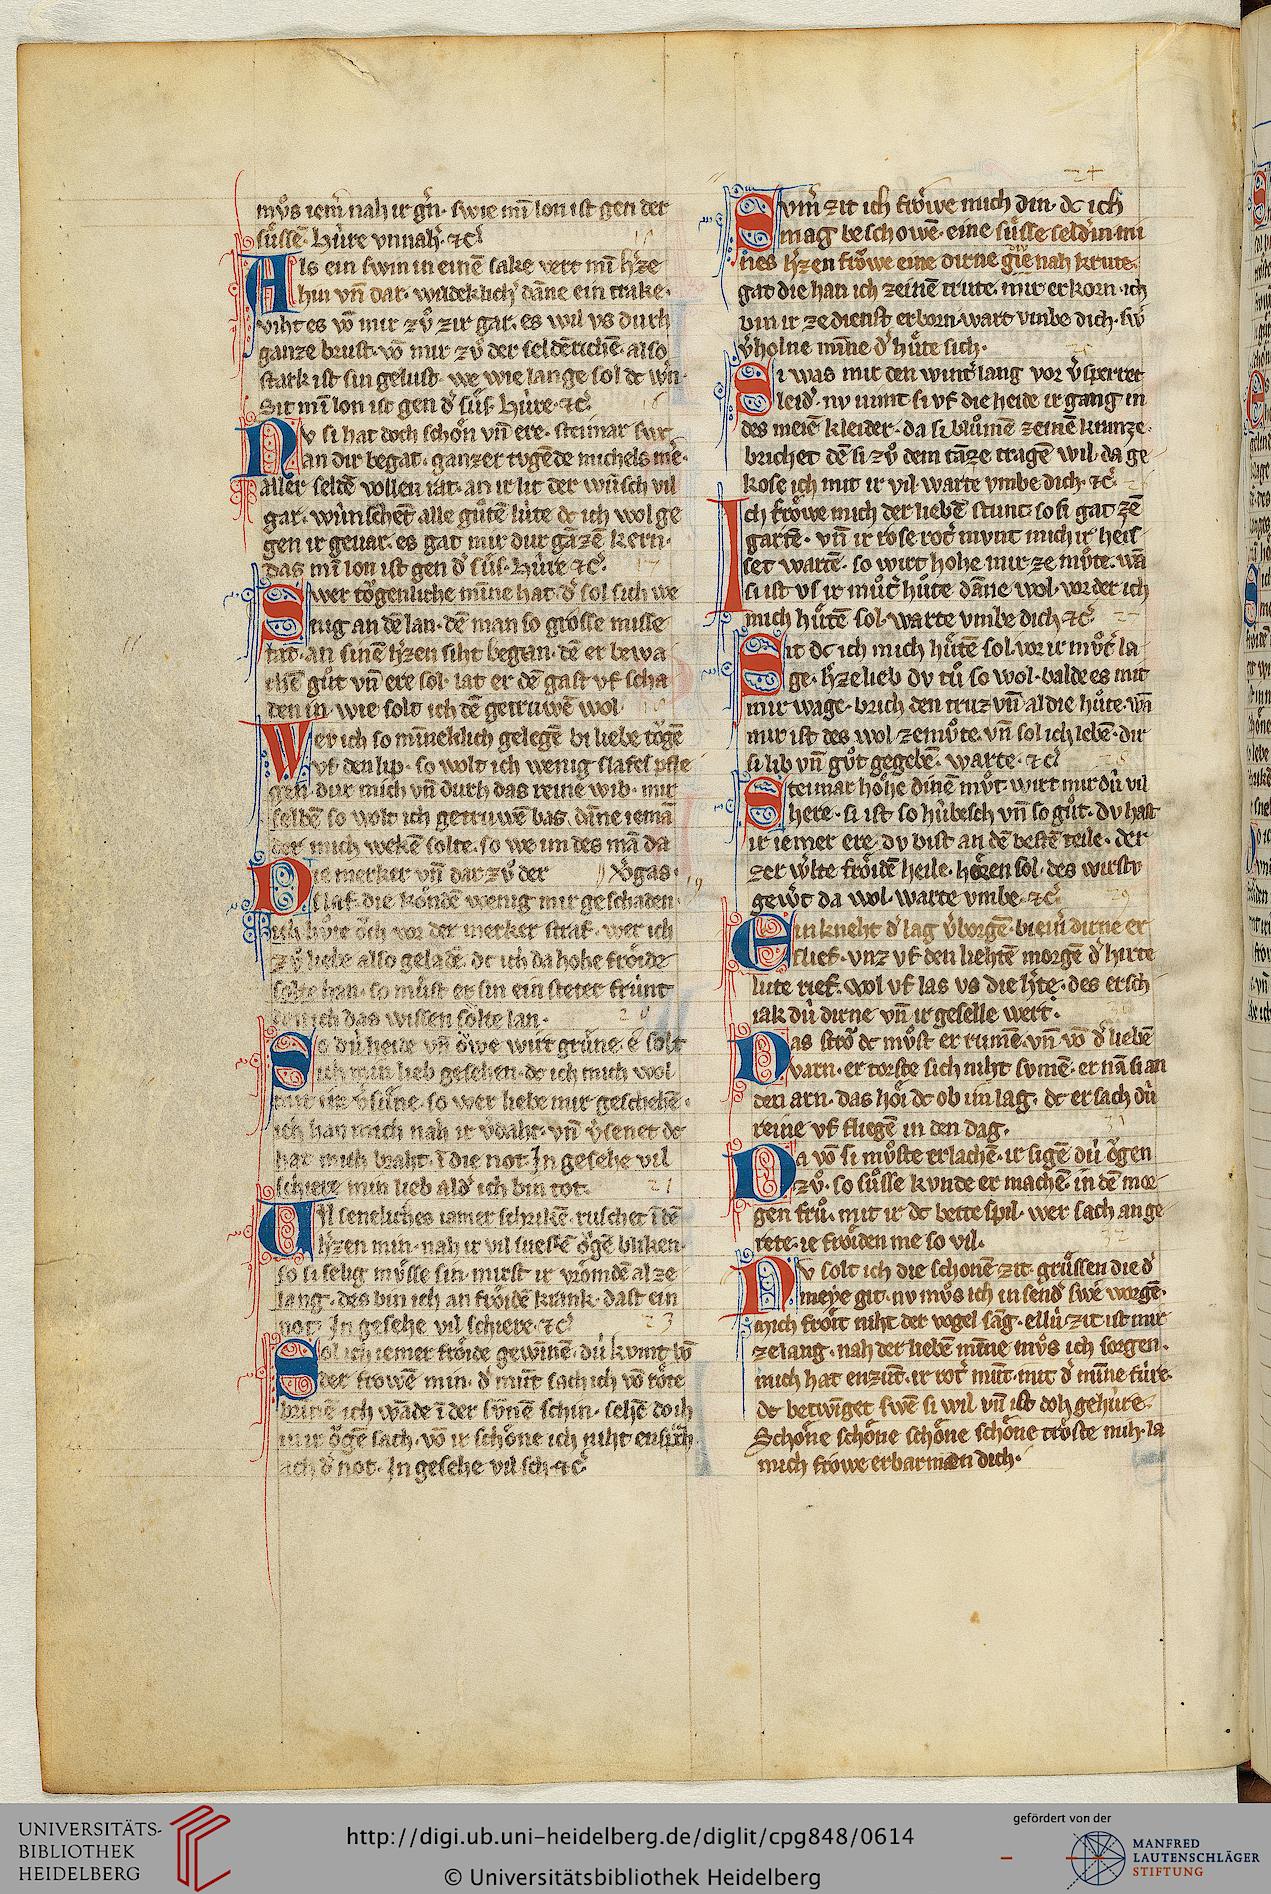 mv̊s iem̄ nah ir gn̄. swie mī lon ist gen der
sv̊ssē. hv̍re vnnah'. ꝛc̄.
Als ein swin in einē sake vert mī h'ze
hin vn̄ dar. wildeklich' dāne ein trake.
viht es vō mir zv̊ zir gar. es wil vs durh
ganze brust. vō mir zv̊ der seldērichē. also
stark ist sin gelust. we wie lange sol dc w'n.
Sit mī lon ist gen d' sv̊s. hv̍re. ꝛc̄.
16
Nv si hat doch schön vn̄ ere. steimar swc
an dir begat. ganzer tvgēde michels mē.
aller seldē vollen rat. an ir lit der wūsch vil
gar. wv̍nschet alle gv̊tē lv̍te dc ich wol ge
gen ir gevar. es gat mir dur gāzē kern.
das mī lon ist gen d' sv̍s. hv̍re ꝛc̄.
17
Swer tŏgenliche mīne hat. d' sol sich we
nig an dē lan. dē man so grosse misse
tat. an sinē h'zen siht began. dē er bewa
rhē gv̊t vn̄ ere sol. lat er dē gast vf scha
den in. wie solt ich dē getruwē wol.
Wer ich so mineklich gelegē bi liebe tŏgē
vf den lip. so wolt ich wenig slafes pfle
gen. dur mich vn̄ durh das reine wib. mir
selbē so wolt ich getruwē bas. dāne iemā
der mich wekē solte. so we im des mā da
Die merker vn̄ dar zv̊ der v'gas.
19
slaf. die kŏndē wenig mir geschaden.
ich hv̍te ŏch vor der merker straf. wer ich
zv̊ liebe also geladē. dc ich da hohe frŏide
solte han. so mv̊st er sin ein steter frv̍nt
den ich das wissen sŏlte lan.
20
So dv̍ heide vn̄ ŏwe wirt grv̍ne. ē solt
ich min lieb gesehen. dc ich mich wol
mit ir v'sv̍ne. so wer liebe mir geschehē.
ich han mich nah ir v'daht. vn̄ v'senet dc
hat mich braht. ī die not. In gesehe vil
schiere min lieb ald' ich bin tot.
21
Al seneliches iamer schriken. ruschet ī dē
h'zen min. nah ir vil suessē ŏgē bliken.
so si selig mv̊sse sin. mirst ir vrŏmdē al ze
lang. des bin ich an frŏidē krank. dast ein
not. In gesehe vil schiere. ꝛc̄.
23
Sol ich iemer frŏide gewinē. dv̍ kvmt vō
der frowē min. d' mūt sach ich vō rŏte
brinē ich wāde ī der svnē schin. sehē do ih
mir ŏgē sach. vō ir schŏne ich niht ensprh.
ach d' not. In gesehe vil sch. ꝛc̄.
24
Svm' zit ich frŏwe mich din. dc ich
mag beschowē. eine sv̊sse seldin mi
nes h'zen frŏwe eine dirne div̍ nah krute.
gat die han ich zeinē trute. mir erkorn. ich
bin ir ze dienst erborn. wart vmbe dich. sw'
v'holne mīne d' hv̊te sich.
25
Si was mir den wint' lang vor v'sperret
leid'. nv nimt si vf die heide ir gang in
des meiē kleider. da si blv̊mē zeinē kranze.
brichet dē si zv̊ dem tāze tragē wil. da ge
kose ich mit ir vil. warte vmbe dich. ꝛc̄.
Ich frŏwe mich der liebē stunt. so si gat zē
gartē. vn̄ ir rose rot' mvnt mich ir heis
set wartē. so wirt hohe mir ze mv̊te. wā
si ist vs ir mv̊t' hv̊te dāne wol. vor der ich
mich hv̊tē sol. warte vmbe dich ꝛc̄.
27
Sit dc ich mich hv̊tē sol. vor ir mv̊t' la
ge. h'ze lieb dv tv̊ so wol. balde es mit
mir wage. brich den truz vn̄ al die hv̊te. wā
mir ist des wol ze mv̊te. vn̄ sol ich lebē. dir
si lib vn̄ gv̊t gegebē. warte. ꝛc̄.
28
Steimar hŏhe dinē mv̊t. wirt mir dv̍ vil
here. si ist so hv̍besch vn̄ so gv̊t. dv hast
ir iemer ere. dv bist an dē bestē teile. der
zer w'lte frŏidē heile. hŏren sol. des wirstv
gew't da wol. warte vmbe. ꝛc̄.
29
Ein kneht d' lag v'borgē. bi ein' dirne er
slief. vnz vf den liehtē morgē d' hirte
lute rief. wol vf las vs die h'te. des ersch
rak dv̍ dirne vn̄ ir geselle wert.
Das strŏ dc mv̊st er rumē. vn̄ vō d' liebē
varn. er torste sich niht svmē. er nā si an
den arn. das hŏi dc ob im lag. dc ersach dv̍
reine vf fliegē in den dag.
31
Da vō si mv̊ste erlachē. ir sigē dv̍ ŏgen
zv̊. so sv̊sse kvnde er machē. in dē mor
gen frv̊. mit ir dc bette spil. wer sach an ge
rete. ie frŏiden me so vil.
32
Nv solt ich die schonē zit. grv̊ssen die d'
meye git. nv mv̊s ich in send' swē worgē.
mich frŏit niht der vogel sāg. ellv̍ zit ist mir
zelang. nah der liebē mīne mv̊s ich sorgen.
mich hat enzūt. ir rot' mūt. mit d' mīne fiure.
dc betwīget swē si wil vn̄ ist doh gehv̍re.
Schŏne schŏne schŏne schŏne trŏste mih. la
mich frowe erbarmen dich.
UNIVERSITÄTS-
BIBLIOTHEK
HEIDELBERG
http://digi.ub.uni-heidelberg.de/diglit/cpg848/0614
© Universitätsbibliothek Heidelberg
gefördert von der
MANFRED
LAUTENSCHLÄGER
STIFTUNG